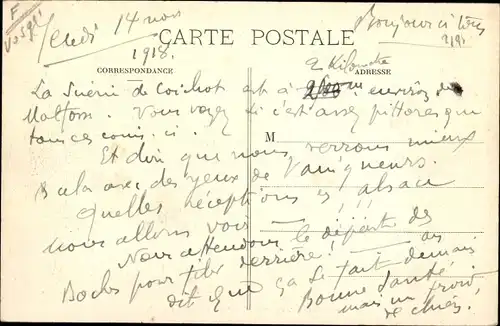 F
Vosges
Jeudi 14 nov
1918.
Bonjour à tous
CARTE POSTALE
CORRESPONDANCE
ADRESSE
2 kilomètres
La Scierie de Coichot est à environ de
Malfosse. Vous voyez si c'est assez pittoresque
tous ces coins-ci.
M
Et dire que nous verrons mieux
cela avec des yeux de Vainqueurs.
Quelles réceptions en alsace
nous allons voir
Nous attendons le départ des
Boches pour filer derrière!
dit que ça se fait demain
Bonne Santé
mais un froid
de chien.